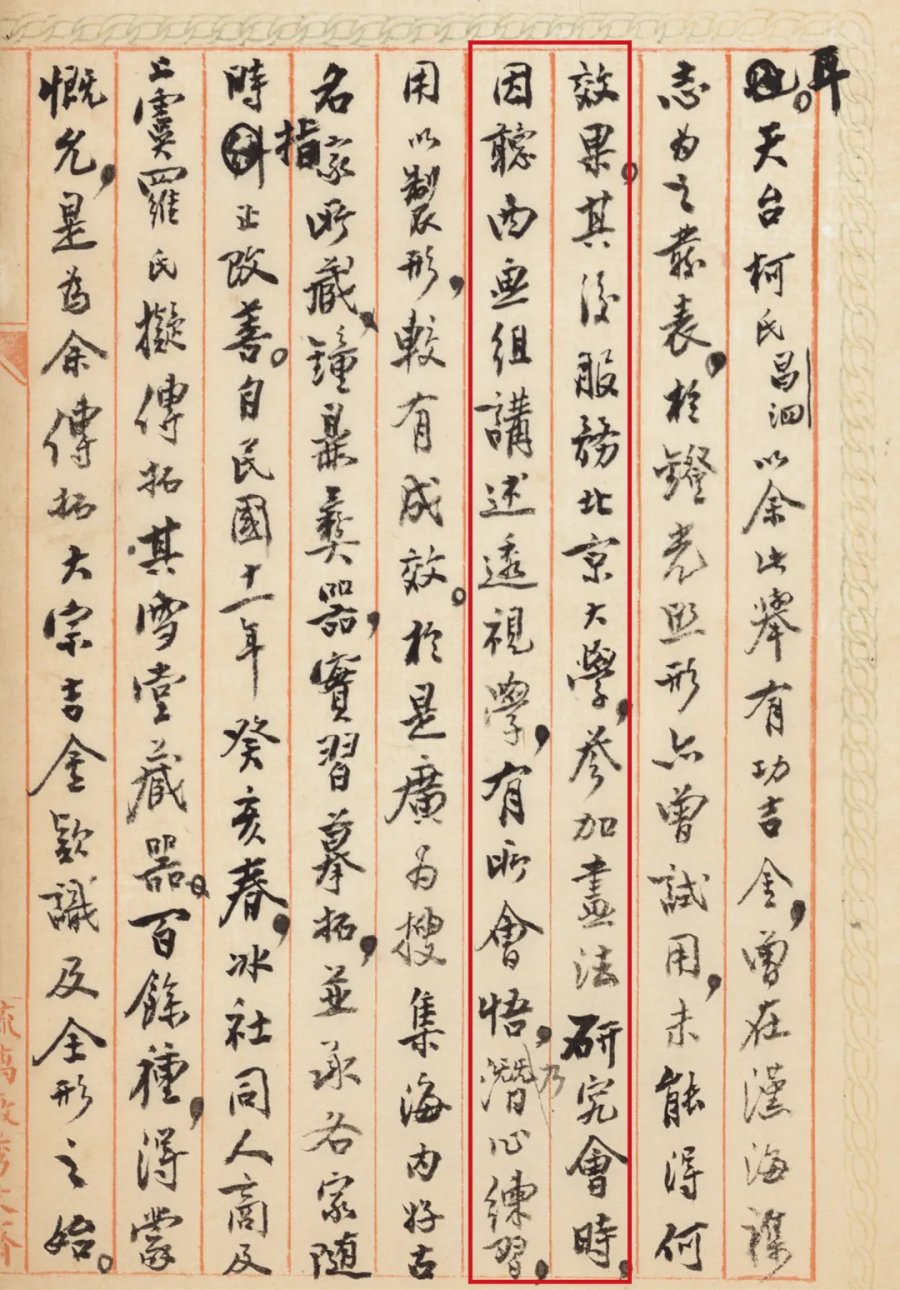 耳。天台柯氏昌泗以余此舉有功吉金，曾在漢海襍
志为之發表，於鐙光照形亦曾試用，未能得何
效果，其後服務北京大學，參加畫法研究會時，
因聽西画組講述透視學，有所會悟，乃潛心練習，
用以製形，較有成效。於是廣为搜集海内好古
名家所藏，鐘鼎彝器，實習摹拓，並承各家随
時指正改善。自民國十一年癸亥春，冰社同人商及
上虞羅氏擬傳拓其雪堂藏器。百餘種，得蒙
慨允，是為余傳拓大宗吉金款識及全形之始。